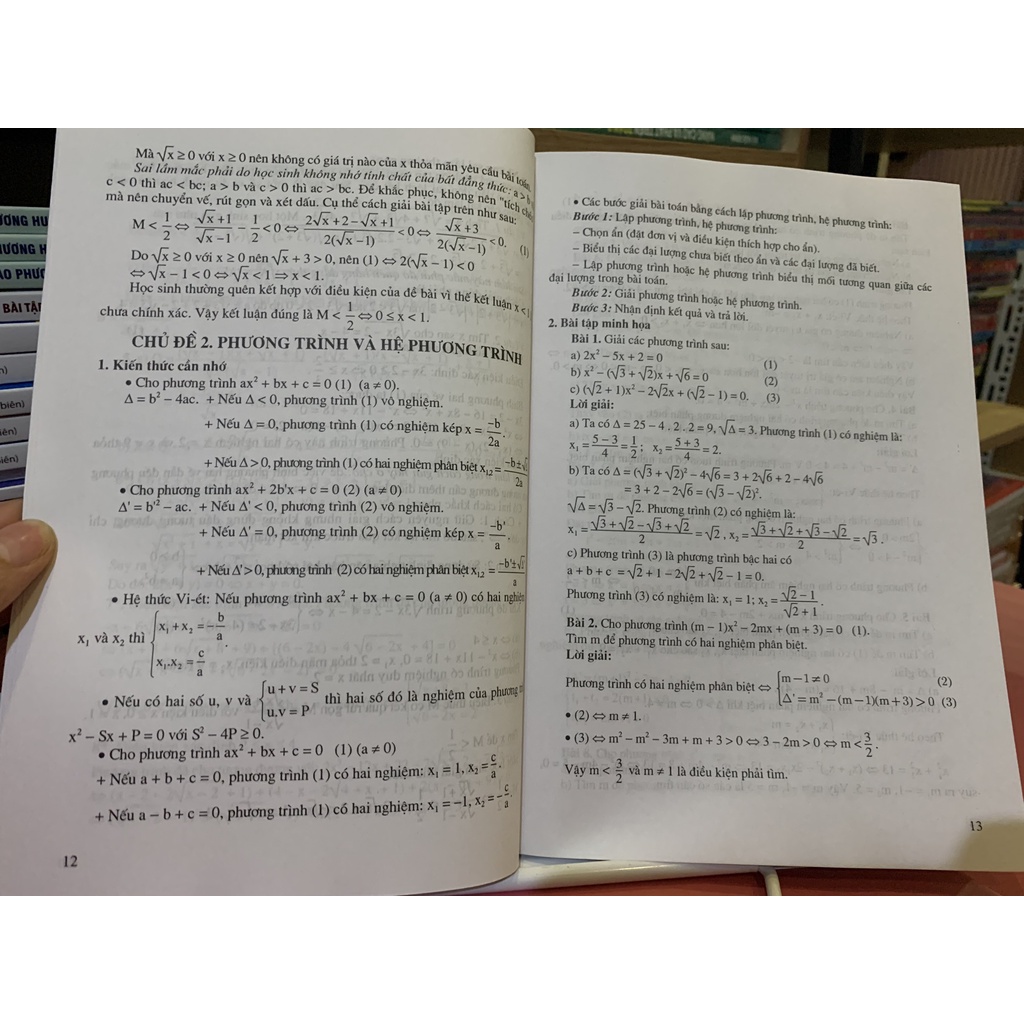 ƯƠNG HU
ƯƠNG H
AO PHƯƠ
BÀI TẬP
biên)
iên)
iên)
Mà √x ≥ 0 với x ≥ 0 nên không có giá trị nào của x thỏa mãn yêu cầu bài toán.
Sai lầm mắc phải do học sinh không nhớ tính chất của bất đẳng thức: a > b
c < 0 thì ac < bc; a > b và c > 0 thì ac > bc. Để khắc phục, không nên "tích
mà nên chuyển vế, rút gọn và xét dấu. Cụ thể cách giải bài tập trên như sau:
M < 1/2 ⇔ (√x + 1)/(√x − 1) − 1/2 < 0 ⇔ (2√x + 2 − √x + 1)/(2(√x − 1)) < 0 ⇔ (√x + 3)/(2(√x − 1)) < 0. (1)
Do √x ≥ 0 với x ≥ 0 nên √x + 3 > 0, nên (1) ⇔ 2(√x − 1) < 0
⇔ √x − 1 < 0 ⇔ √x < 1 ⇒ x < 1.
Học sinh thường quên kết hợp với điều kiện của đề bài vì thế kết luận x < 1
chưa chính xác. Vậy kết luận đúng là M < 1/2 ⇔ 0 ≤ x < 1.
CHỦ ĐỀ 2. PHƯƠNG TRÌNH VÀ HỆ PHƯƠNG TRÌNH
1. Kiến thức cần nhớ
• Cho phương trình ax² + bx + c = 0 (1) (a ≠ 0).
Δ = b² − 4ac. + Nếu Δ < 0, phương trình (1) vô nghiệm.
+ Nếu Δ = 0, phương trình (1) có nghiệm kép x = −b/2a.
+ Nếu Δ > 0, phương trình (1) có hai nghiệm phân biệt x₁,₂ = (−b ± √)/2a
• Cho phương trình ax² + 2b'x + c = 0 (2) (a ≠ 0)
Δ' = b'² − ac. + Nếu Δ' < 0, phương trình (2) vô nghiệm.
+ Nếu Δ' = 0, phương trình (2) có nghiệm kép x = −b'/a.
+ Nếu Δ' > 0, phương trình (2) có hai nghiệm phân biệt x₁,₂ = (−b' ± √)/a
• Hệ thức Vi-ét: Nếu phương trình ax² + bx + c = 0 (a ≠ 0) có hai nghiệm
x₁ và x₂ thì { x₁ + x₂ = −b/a
x₁.x₂ = c/a .
• Nếu có hai số u, v và { u + v = S
u.v = P thì hai số đó là nghiệm của phương
x² − Sx + P = 0 với S² − 4P ≥ 0.
• Cho phương trình ax² + bx + c = 0 (1) (a ≠ 0)
+ Nếu a + b + c = 0, phương trình (1) có hai nghiệm: x₁ = 1, x₂ = c/a.
+ Nếu a − b + c = 0, phương trình (1) có hai nghiệm: x₁ = −1, x₂ = −c/a.
12
• Các bước giải bài toán bằng cách lập phương trình, hệ phương trình:
Bước 1: Lập phương trình, hệ phương trình:
− Chọn ẩn (đặt đơn vị và điều kiện thích hợp cho ẩn).
− Biểu thị các đại lượng chưa biết theo ẩn và các đại lượng đã biết.
− Lập phương trình hoặc hệ phương trình biểu thị mối tương quan giữa các
đại lượng trong bài toán.
Bước 2: Giải phương trình hoặc hệ phương trình.
Bước 3: Nhận định kết quả và trả lời.
2. Bài tập minh họa
Bài 1. Giải các phương trình sau:
a) 2x² − 5x + 2 = 0 (1)
b) x² − (√3 + √2)x + √6 = 0 (2)
c) (√2 + 1)x² − 2√2x + (√2 − 1) = 0. (3)
Lời giải:
a) Ta có Δ = 25 − 4 . 2 . 2 = 9, √Δ = 3. Phương trình (1) có nghiệm là:
x₁ = (5 − 3)/4 = 1/2; x₂ = (5 + 3)/4 = 2.
b) Ta có Δ = (√3 + √2)² − 4√6 = 3 + 2√6 + 2 − 4√6
= 3 + 2 − 2√6 = (√3 − √2)².
√Δ = √3 − √2. Phương trình (2) có nghiệm là:
x₁ = (√3 + √2 − √3 + √2)/2 = √2, x₂ = (√3 + √2 + √3 − √2)/2 = √3.
c) Phương trình (3) là phương trình bậc hai có
a + b + c = √2 + 1 − 2√2 + √2 − 1 = 0.
Phương trình (3) có nghiệm là: x₁ = 1; x₂ = (√2 − 1)/(√2 + 1).
Bài 2. Cho phương trình (m − 1)x² − 2mx + (m + 3) = 0 (1).
Tìm m để phương trình có hai nghiệm phân biệt.
Lời giải:
Phương trình có hai nghiệm phân biệt ⇔ { m − 1 ≠ 0 (2)
Δ' = m² − (m − 1)(m + 3) > 0 (3)
• (2) ⇔ m ≠ 1.
• (3) ⇔ m² − m² − 3m + m + 3 > 0 ⇔ 3 − 2m > 0 ⇔ m < 3/2.
Vậy m < 3/2 và m ≠ 1 là điều kiện phải tìm.
13